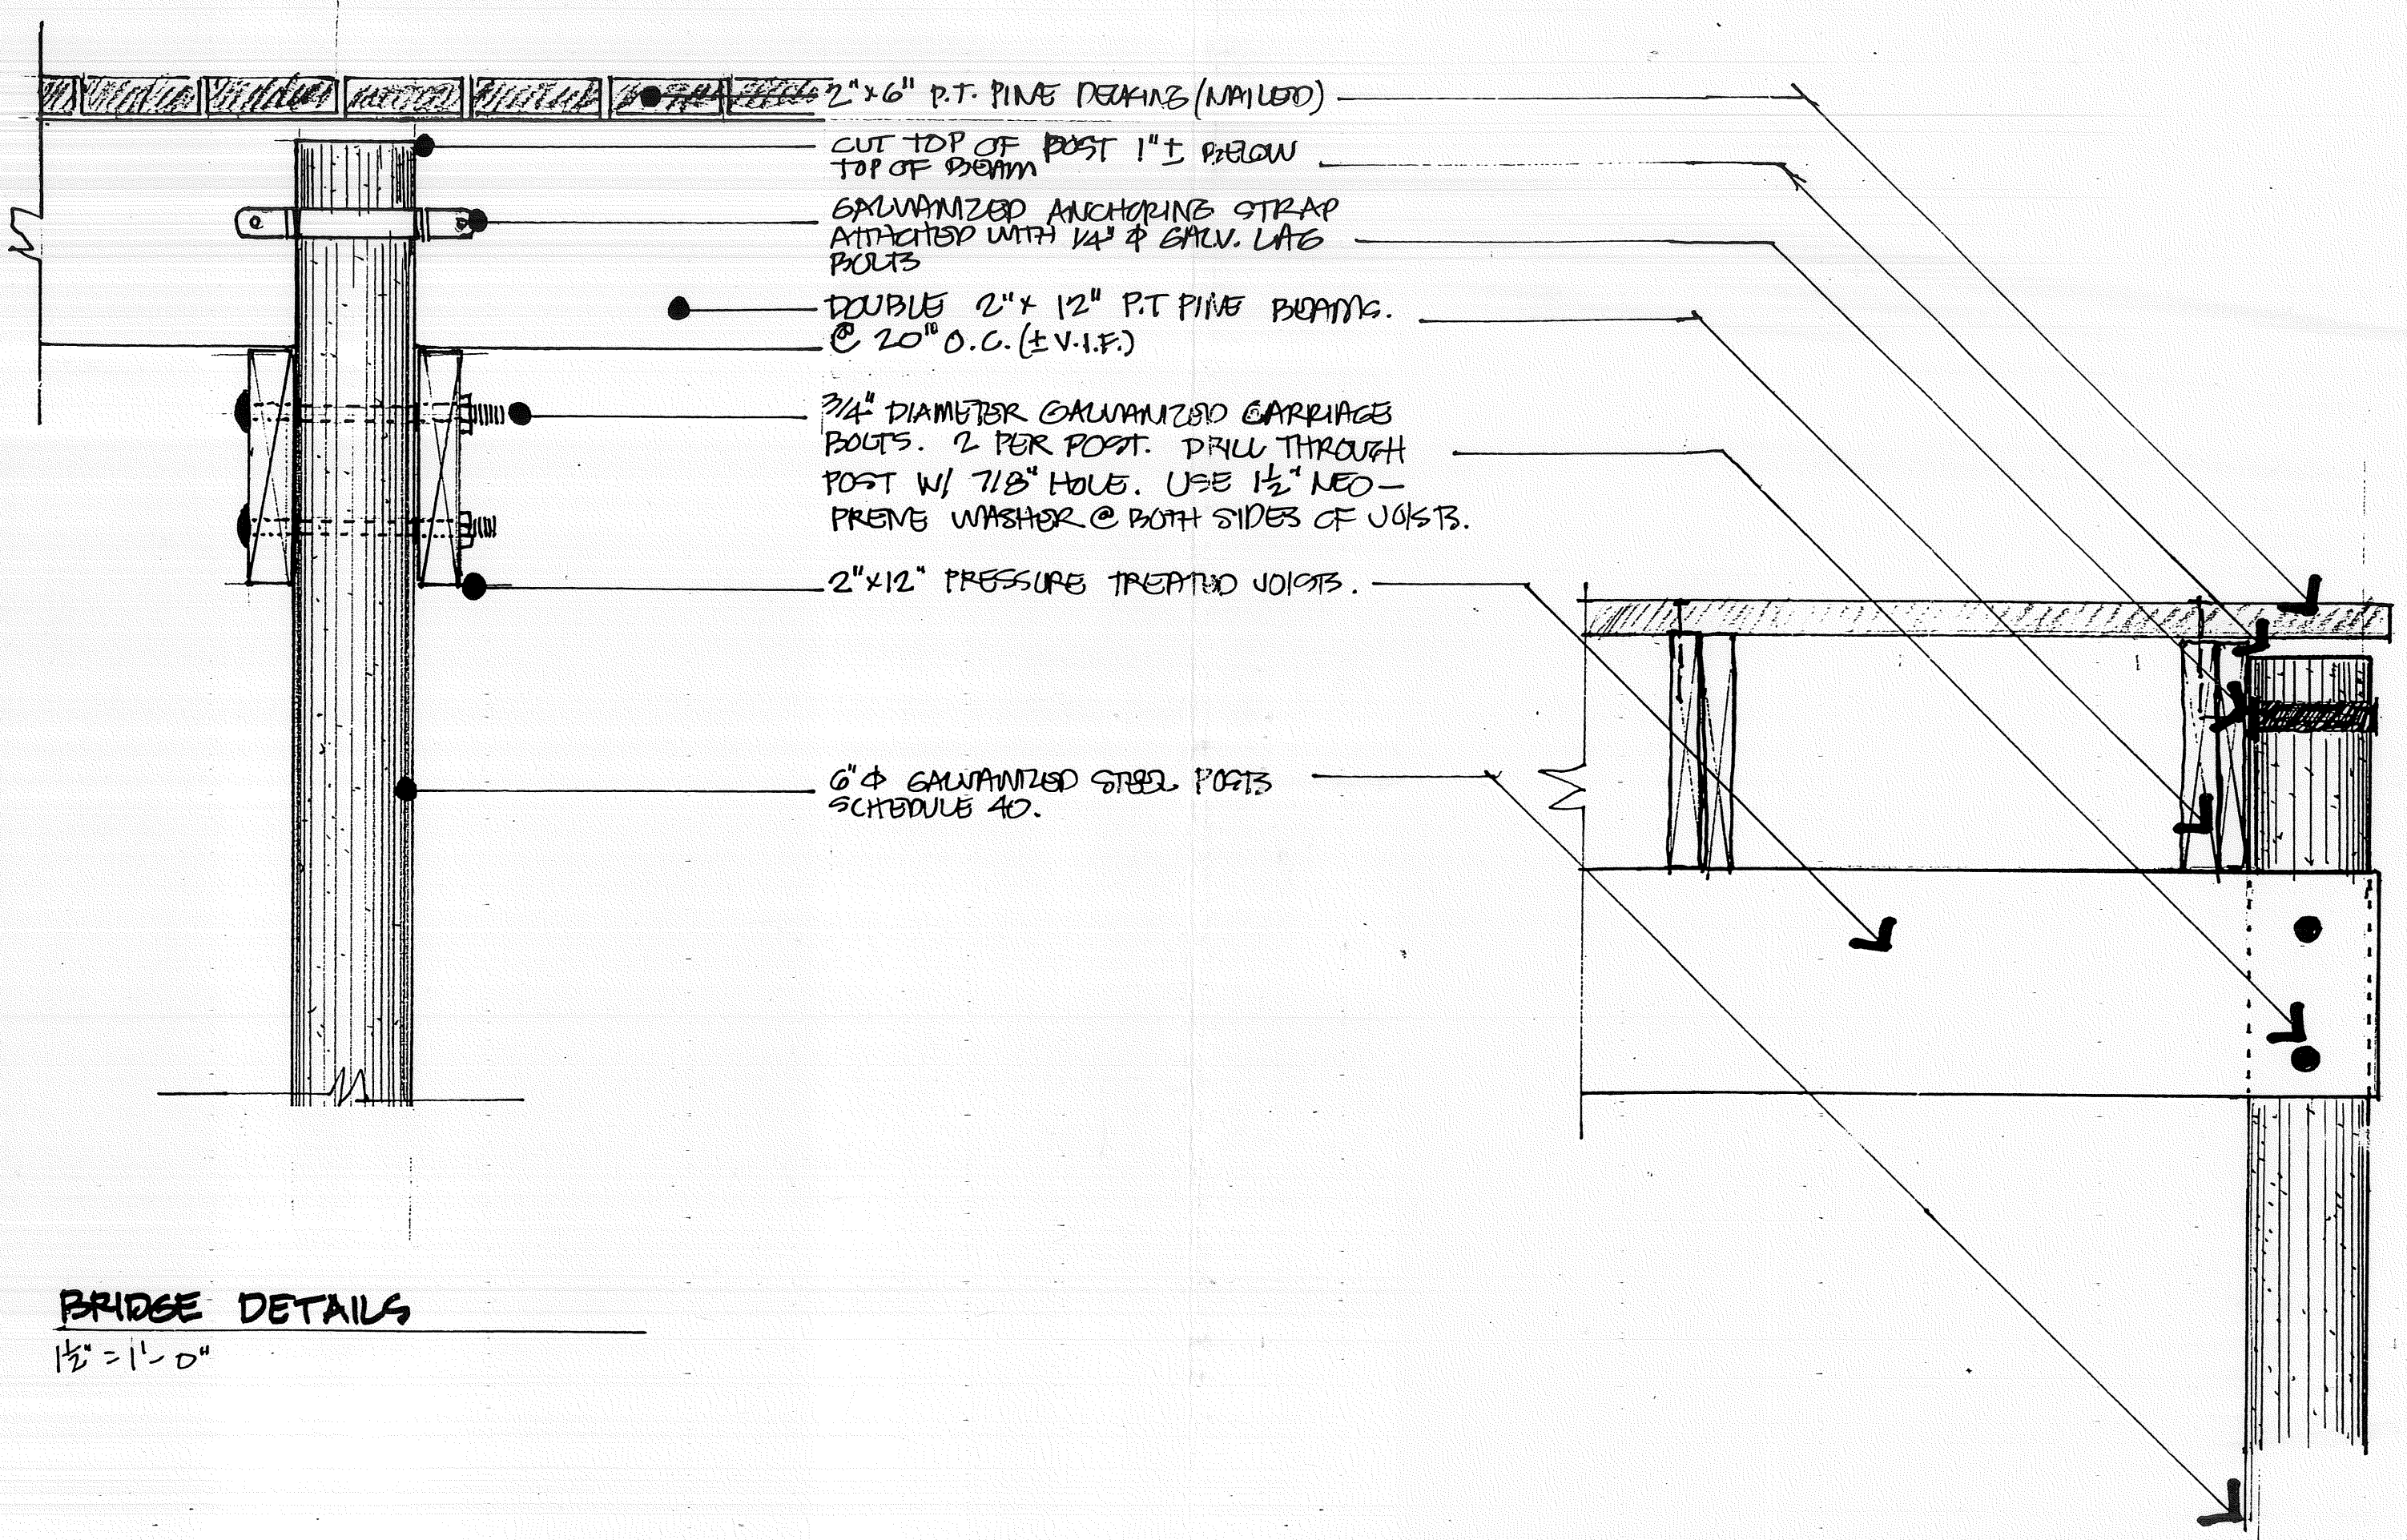 2"x6" P.T. PINE DECKING (NAILED)
CUT TOP OF POST 1"± BELOW
TOP OF BEAM
GALVANIZED ANCHORING STRAP
ATTACHED WITH 1/4" ϕ GALV. LAG
BOLTS
DOUBLE 2"x 12" P.T PINE BEAMS.
@ 20" O.C. (± V.I.F.)
3/4" DIAMETER GALVANIZED CARRIAGE
BOLTS. 2 PER POST. DRILL THROUGH
POST W/ 7/8" HOLE. USE 1½" NEO-
PRENE WASHER @ BOTH SIDES OF JOISTS.
2"x12" PRESSURE TREATED JOISTS.
6" ϕ GALVANIZED STEEL POSTS
SCHEDULE 40.
BRIDGE DETAILS
1½" = 1'-0"